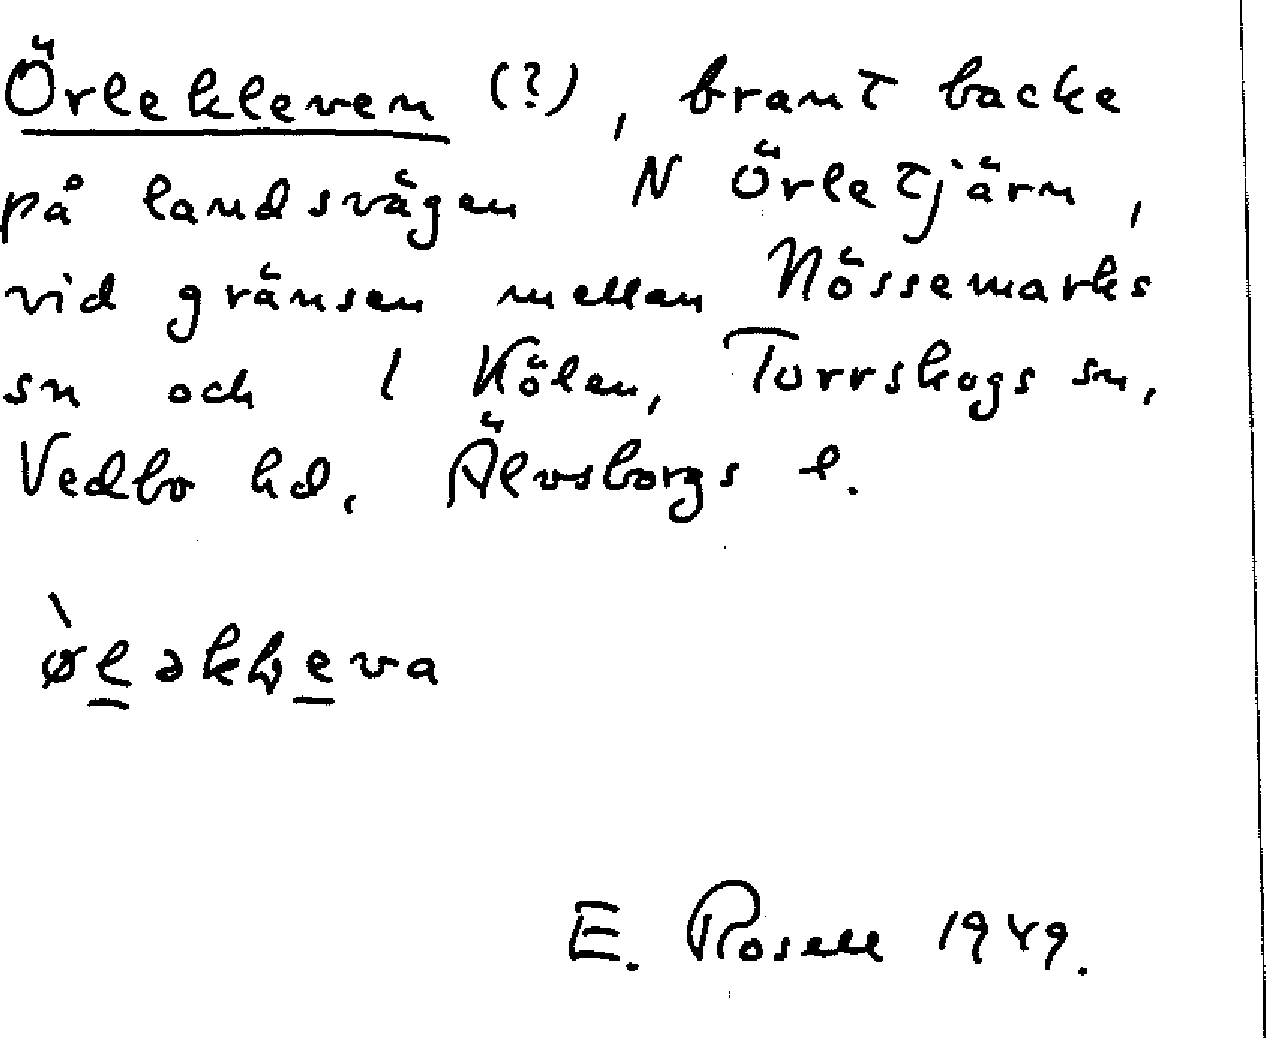 Örlekleven (?), brant backe
på landsvägen N Örletjärn,
vid gränsen mellan Nössemarks
sn och l Kölen, Torrskogs sn,
Vedbo hd, Älvsborgs l.
E. Rosell 1949.